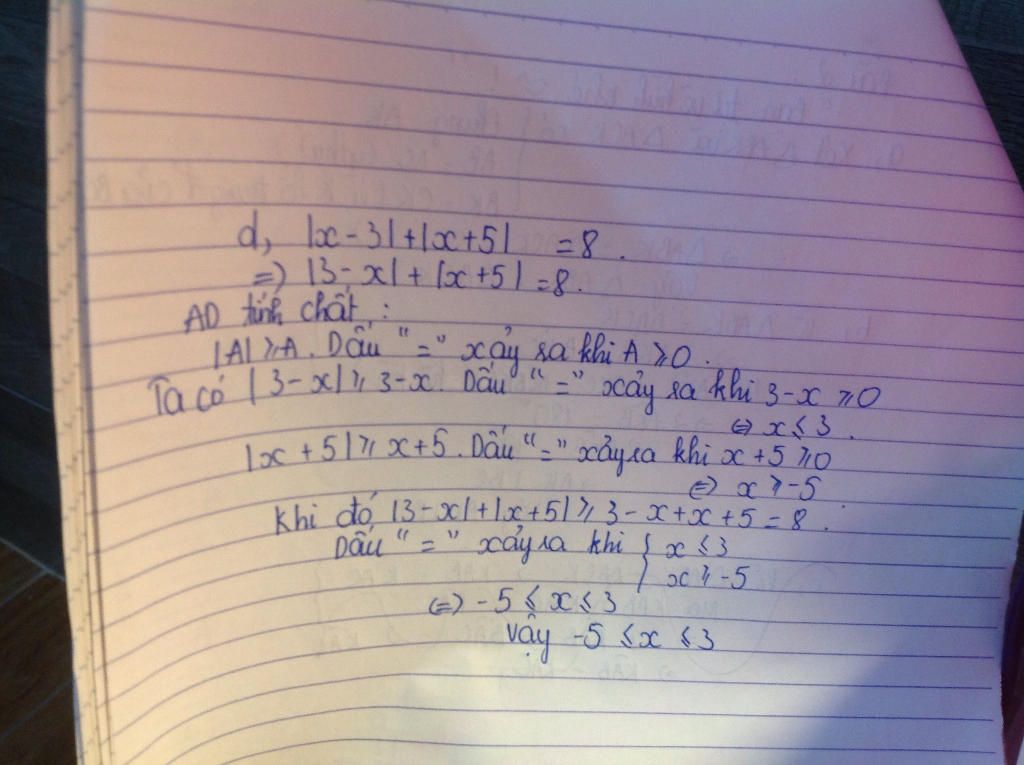 d, |x - 3| + |x + 5| = 8.
=> |3 - x| + |x + 5| = 8.
AD tính chất :
|A| ⩾ A. Dấu "=" xảy ra khi A ⩾ 0.
Ta có |3 - x| ⩾ 3 - x. Dấu "=" xảy ra khi 3 - x ⩾ 0
⇔ x ⩽ 3.
|x + 5| ⩾ x + 5. Dấu "=" xảy ra khi x + 5 ⩾ 0
⇔ x ⩾ -5
Khi đó |3 - x| + |x + 5| ⩾ 3 - x + x + 5 = 8.
Dấu "=" xảy ra khi { x ⩽ 3
x ⩾ -5
⇔ -5 ⩽ x ⩽ 3
Vậy -5 ⩽ x ⩽ 3